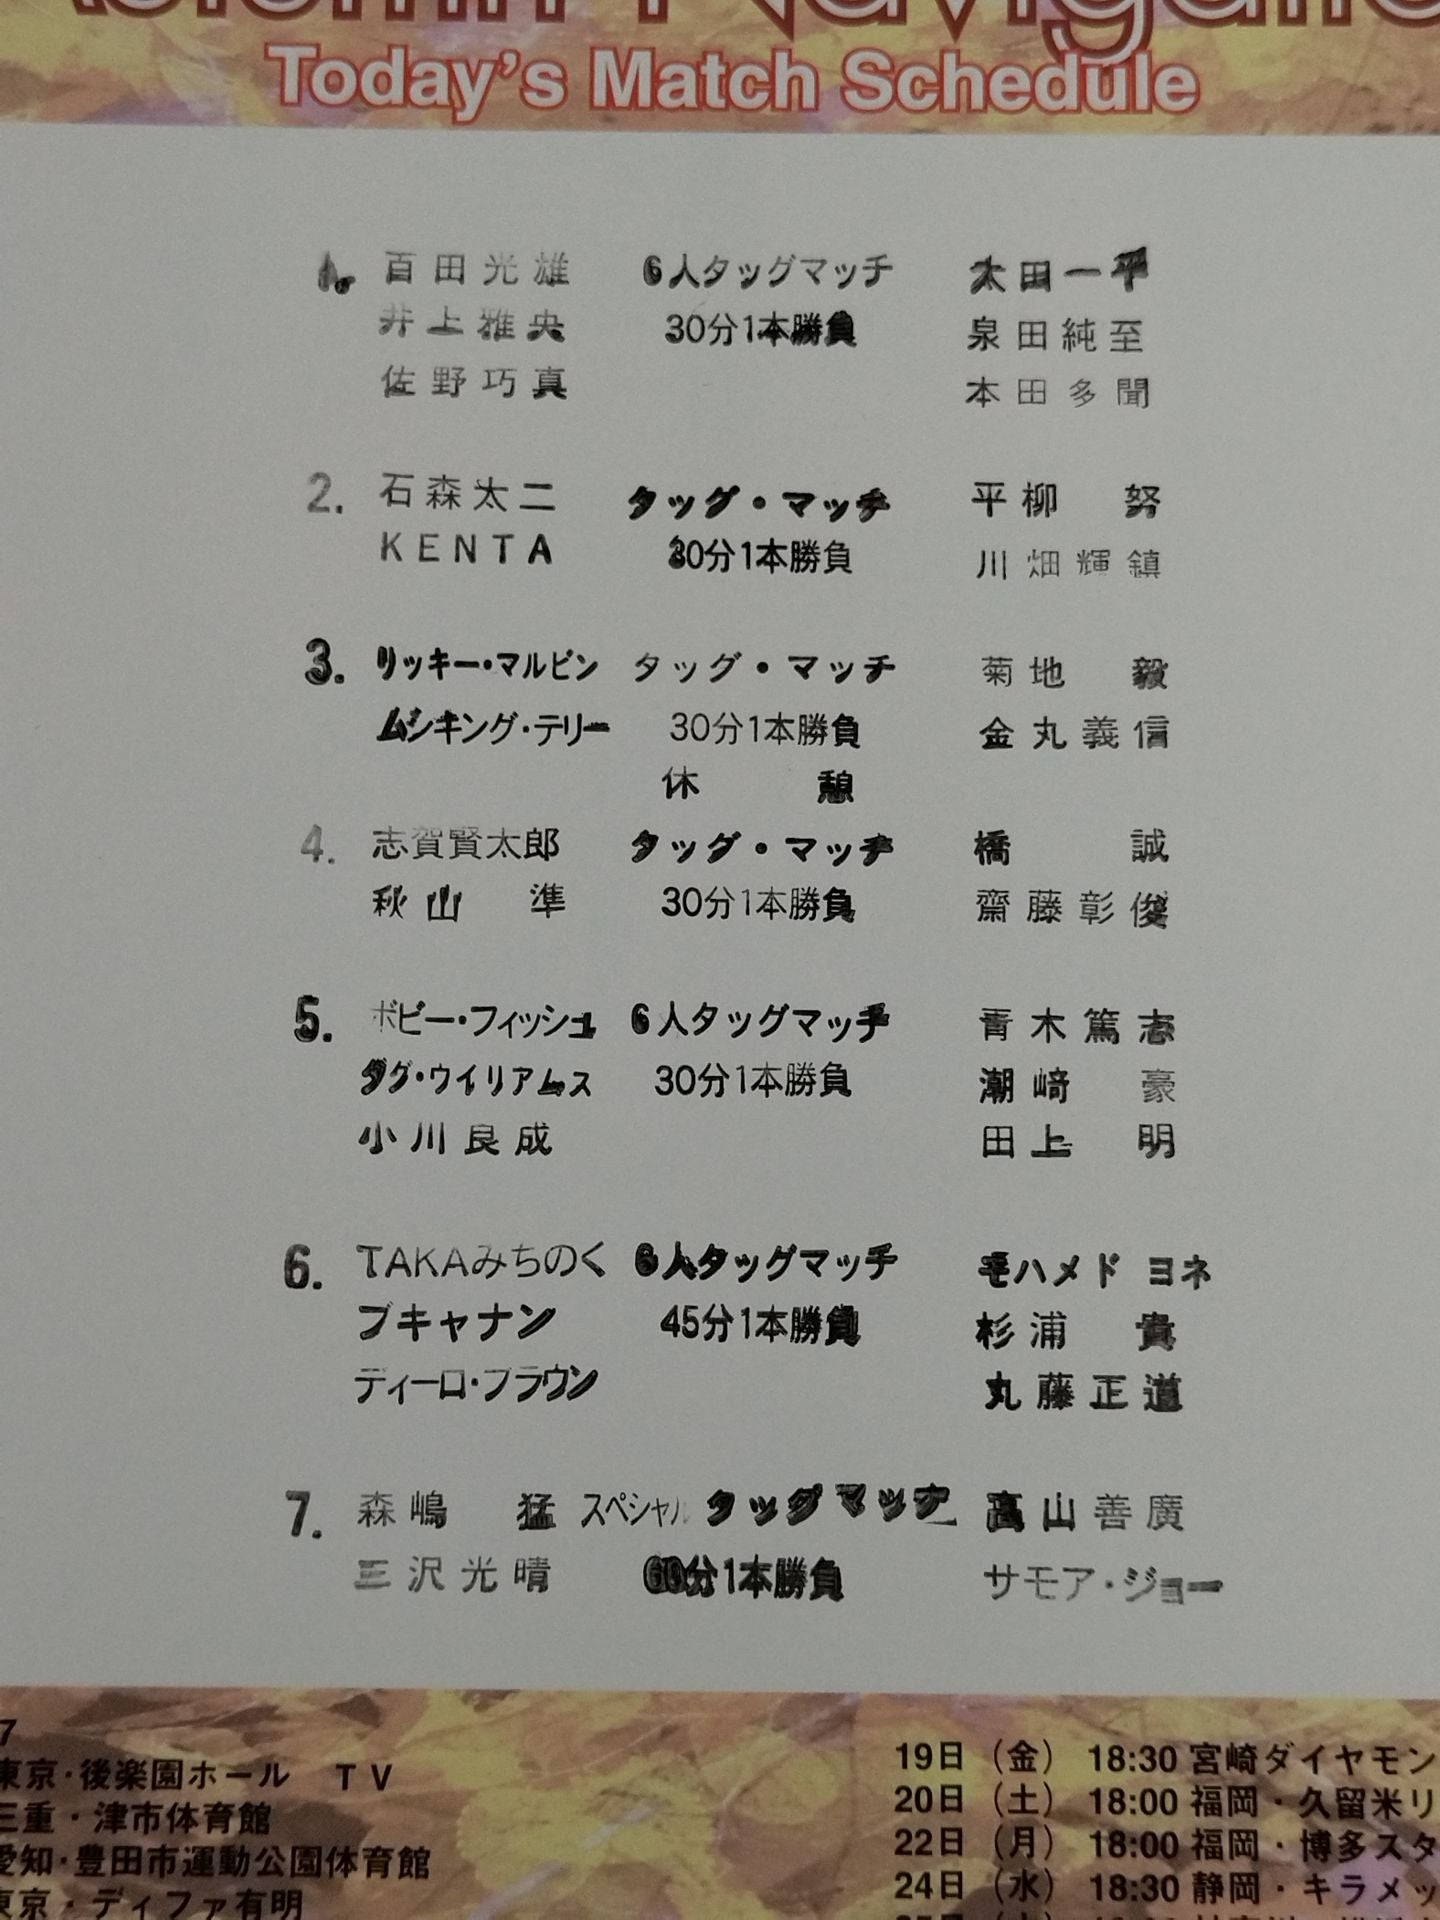 Today's Match Schedule
1. 百田光雄 6人タッグマッチ 太田一平
井上雅央 30分1本勝負 泉田純至
佐野巧真 本田多聞
2. 石森太二 タッグ・マッチ 平柳 努
KENTA 30分1本勝負 川畑輝鎮
3. リッキー・マルビン タッグ・マッチ 菊地 毅
ムシキング・テリー 30分1本勝負 金丸義信
休 憩
4. 志賀賢太郎 タッグ・マッチ 橋 誠
秋山 準 30分1本勝負 齋藤彰俊
5. ボビー・フィッシュ 6人タッグマッチ 青木篤志
ダグ・ウイリアムス 30分1本勝負 潮﨑 豪
小川良成 田上 明
6. TAKAみちのく 6人タッグマッチ モハメド ヨネ
ブキャナン 45分1本勝負 杉浦 貴
ディーロ・ブラウン 丸藤正道
7. 森嶋 猛 スペシャル タッグマッチ 高山善廣
三沢光晴 60分1本勝負 サモア・ジョー
7
東京・後楽園ホール TV
三重・津市体育館
愛知・豊田市運動公園体育館
東京・ディファ有明
19日（金） 18:30 宮崎ダイヤモン
20日（土） 18:00 福岡・久留米リ
22日（月） 18:00 福岡・博多スタ
24日（水） 18:30 静岡・キラメッ